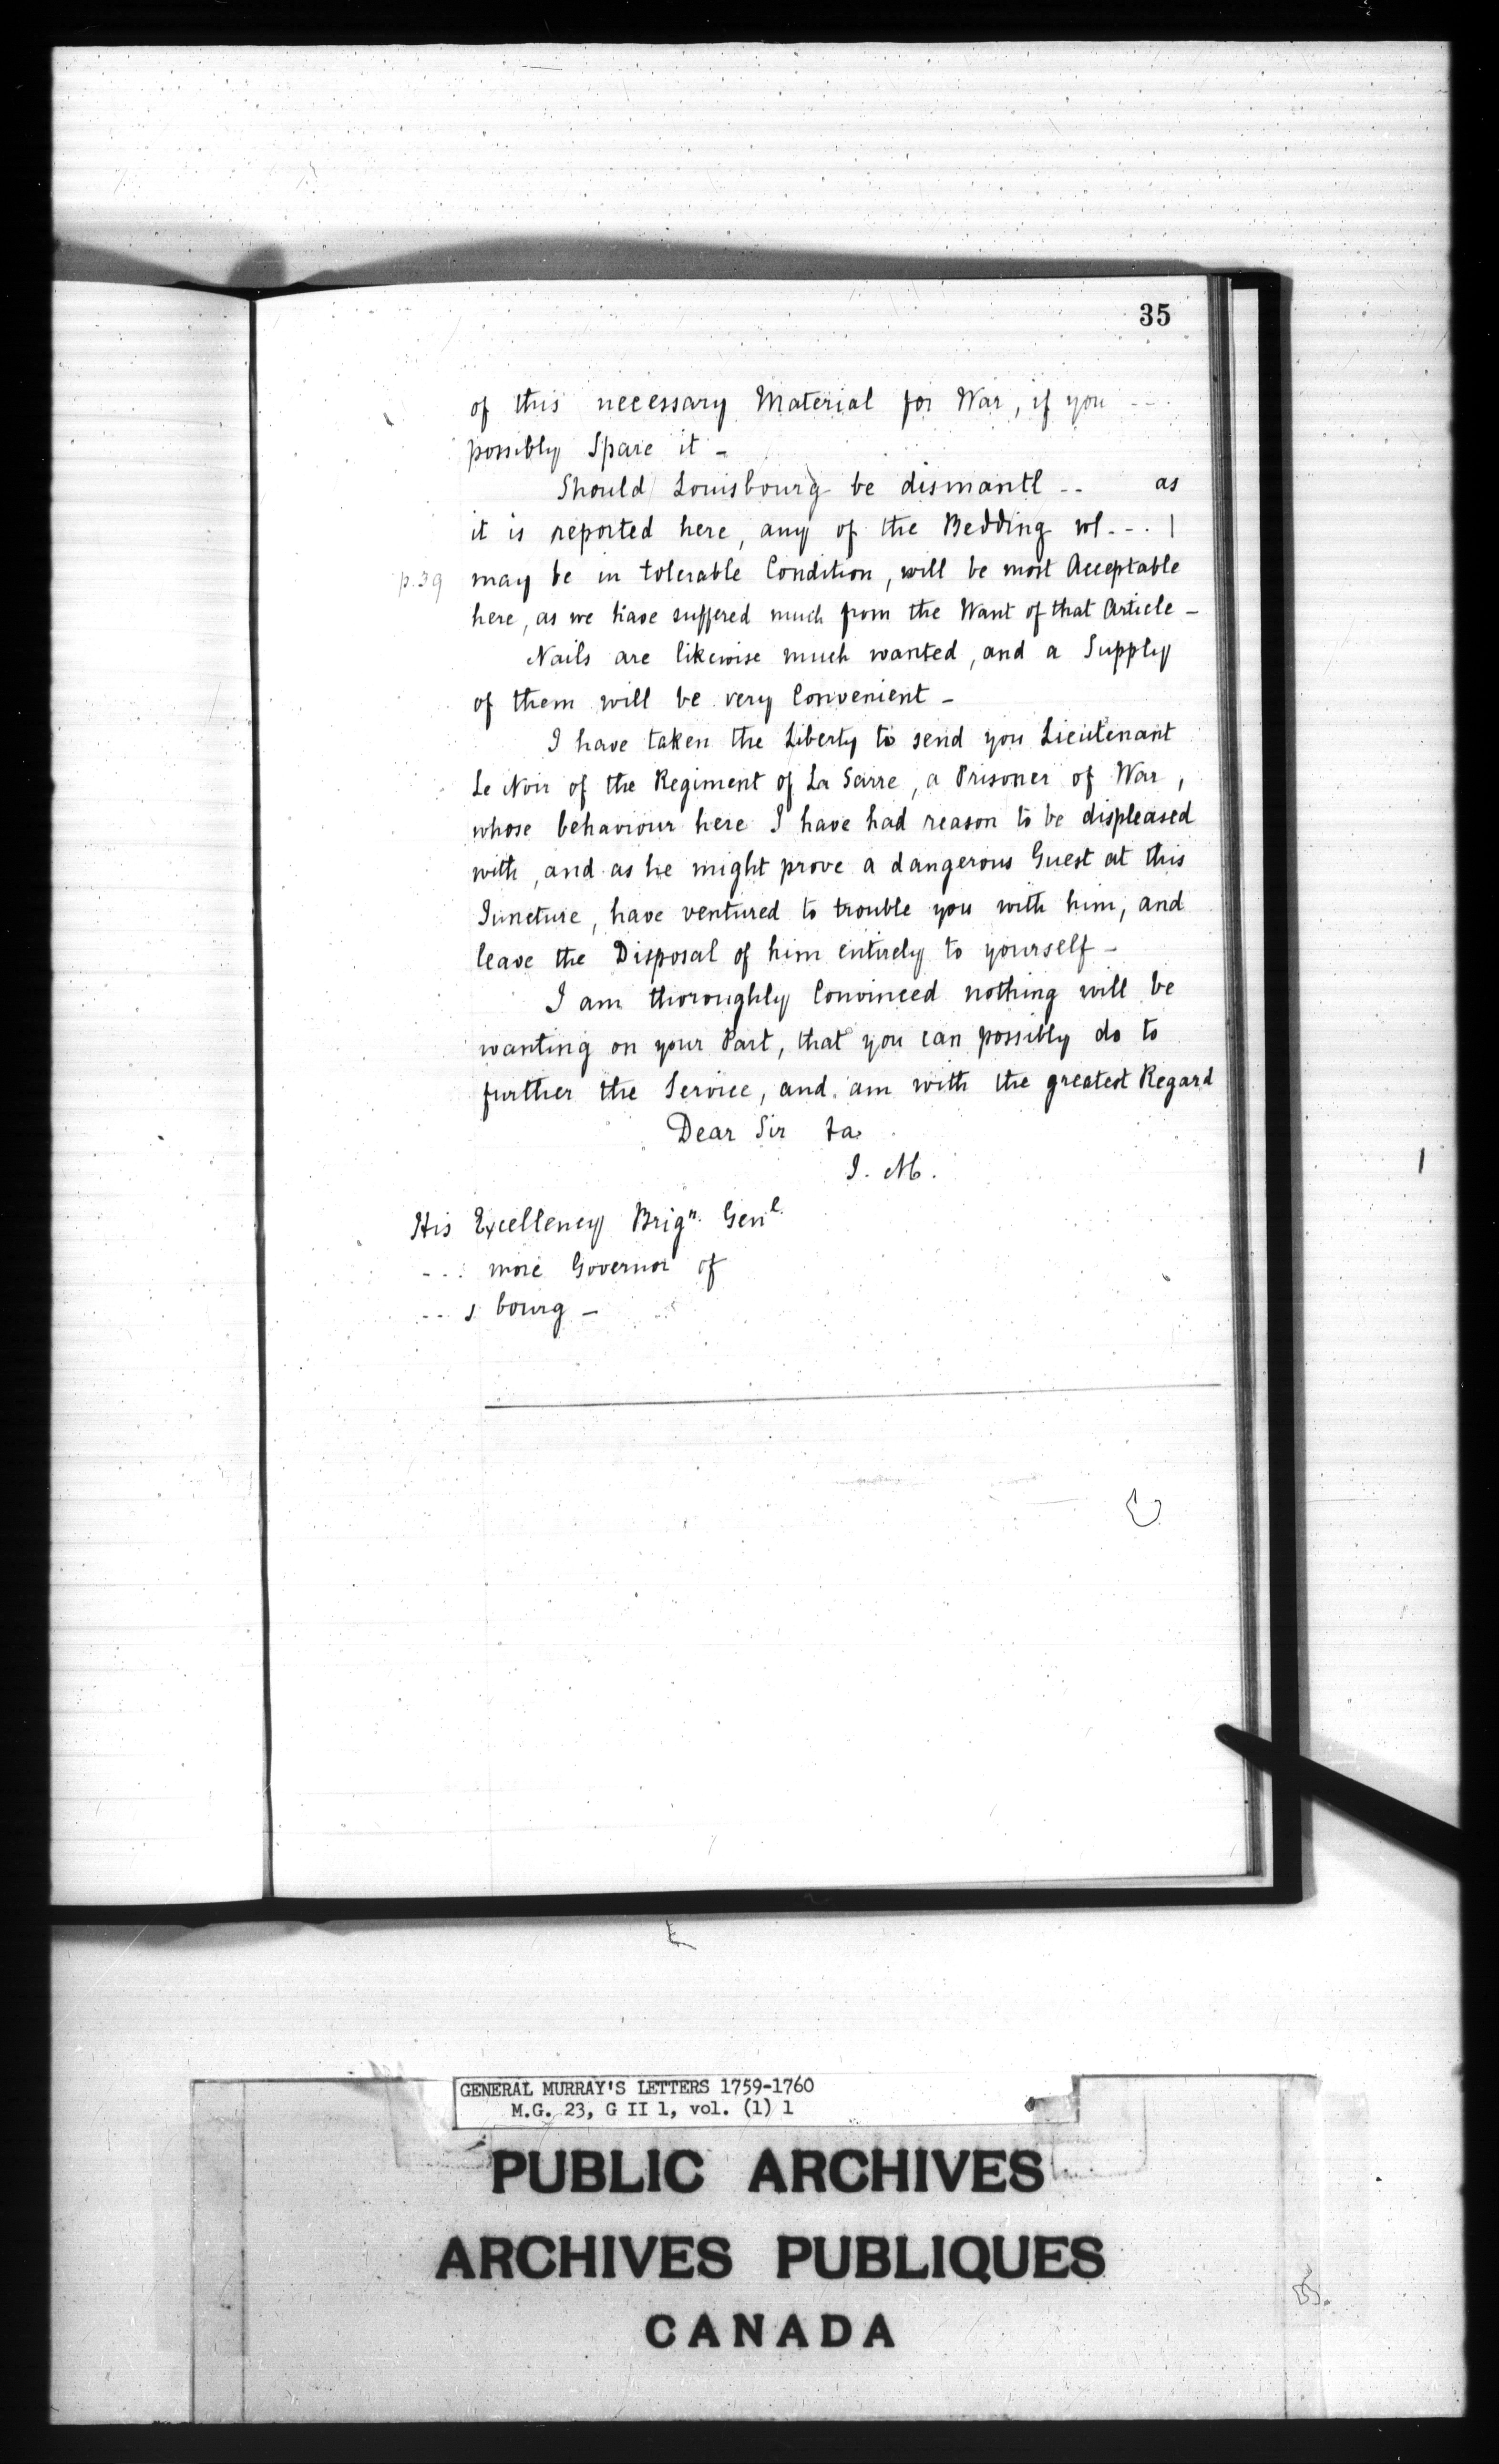 35
of this necessary Material for War, if you ---
possibly Spare it -
Should Louisbourg be dismantl -- as
it is reported here, any of the Bedding wh---
p. 39 may be in tolerable Condition, will be most Acceptable
here, as we have suffered much from the Want of that Article -
Nails are likewise much wanted, and a Supply
of them will be very Convenient -
I have taken the Liberty to send you Lieutenant
Le Noir of the Regiment of La Sarre, a Prisoner of War,
whose behaviour here I have had reason to be displeased
with, and as he might prove a dangerous Guest at this
Juncture, have ventured to trouble you with him, and
leave the Disposal of him entirely to yourself -
I am thoroughly Convinced nothing will be
wanting on your Part, that you can possibly do to
further the Service, and am with the greatest Regard
Dear Sir &a.
J. M.
His Excellency Brigr. Genl.
--- more Governor of
--- s bourg -
GENERAL MURRAY'S LETTERS 1759-1760
M.G. 23, G II 1, vol. (1) 1
PUBLIC ARCHIVES
ARCHIVES PUBLIQUES
CANADA